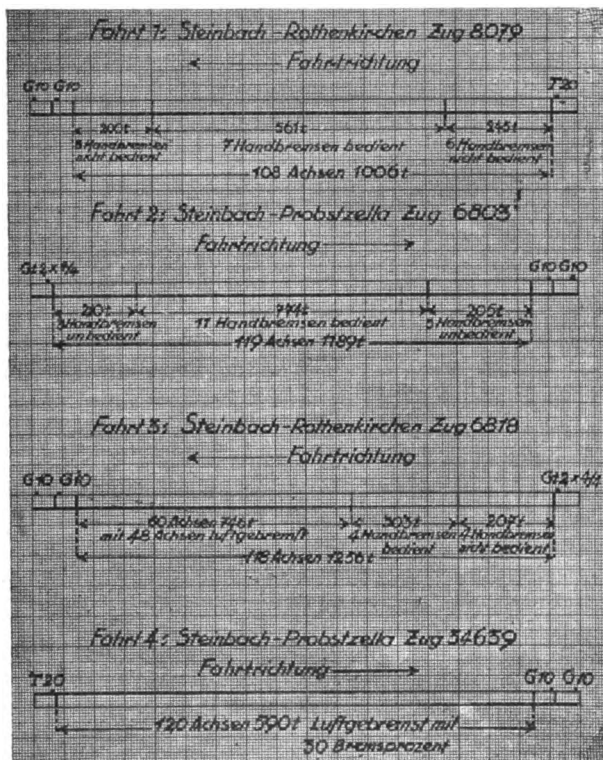 Fahrt 1: Steinbach-Rothenkirchen Zug 8079
Fahrtrichtung
G10 G10 T20
200t 561t 245t
Handbremsen nicht bedient 7 Handbremsen bedient 6 Handbremsen nicht bedient
108 Achsen 1006t
Fahrt 2: Steinbach-Probstzella Zug 6803
Fahrtrichtung
G10 G10
210t 774t 205t
Handbremsen unbedient 11 Handbremsen bedient 5 Handbremsen unbedient
119 Achsen 1189t
Fahrt 3: Steinbach-Rothenkirchen Zug 6818
Fahrtrichtung
G10 G10
60 Achsen 746t 303t 207t
mit 48 Achsen luftgebremst 4 Handbremsen bedient 4 Handbremsen nicht bedient
118 Achsen 1256t
Fahrt 4: Steinbach-Probstzella Zug 34639
Fahrtrichtung
T20 G10 G10
120 Achsen 590t Luftgebremst mit
30 Bremsprozent